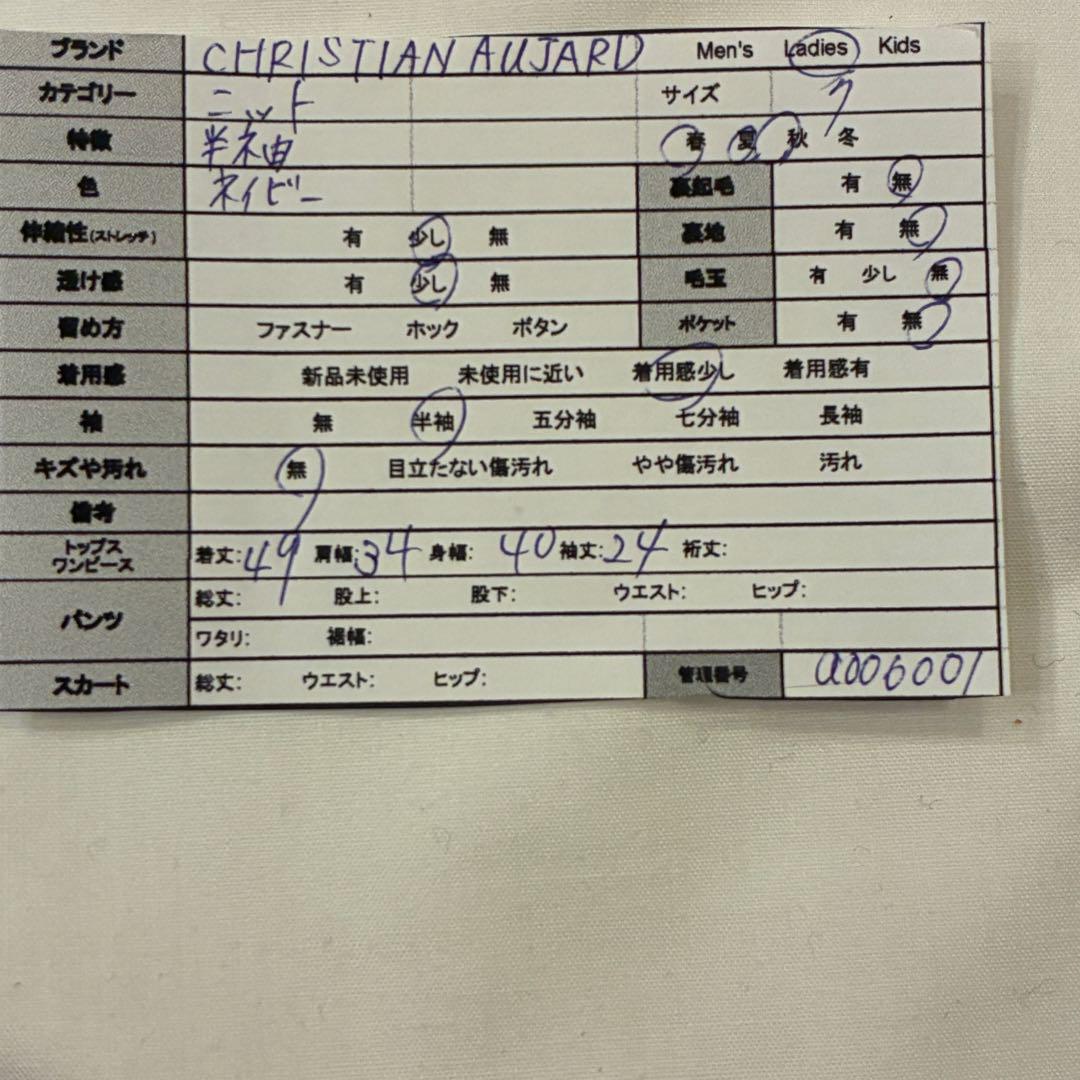 ブランド CHRISTIAN AUJARD Men's Ladies Kids
カテゴリー ニット サイズ 7
特徴 半袖 春 夏 秋 冬
色 ネイビー 裏起毛 有 無
伸縮性(ストレッチ) 有 少し 無 裏地 有 無
透け感 有 少し 無 毛玉 有 少し 無
留め方 ファスナー ホック ボタン ポケット 有 無
着用感 新品未使用 未使用に近い 着用感少し 着用感有
袖 無 半袖 五分袖 七分袖 長袖
キズや汚れ 無 目立たない傷汚れ やや傷汚れ 汚れ
備考
トップス
ワンピース 着丈:49 肩幅:34 身幅: 40 袖丈:24 裄丈:
パンツ 総丈: 股上: 股下: ウエスト: ヒップ:
ワタリ: 裾幅:
スカート 総丈: ウエスト: ヒップ: 管理番号 a006001